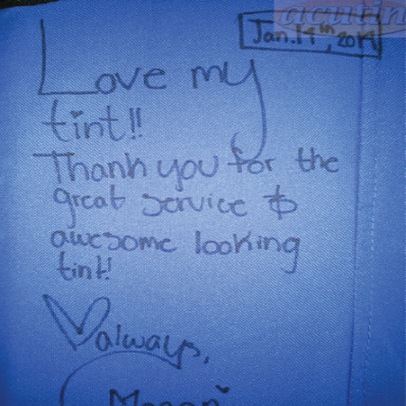 Jan. 14th, 2014
Love my
tint!!
Thank you for the
great service &
awesome looking
tint!
always,